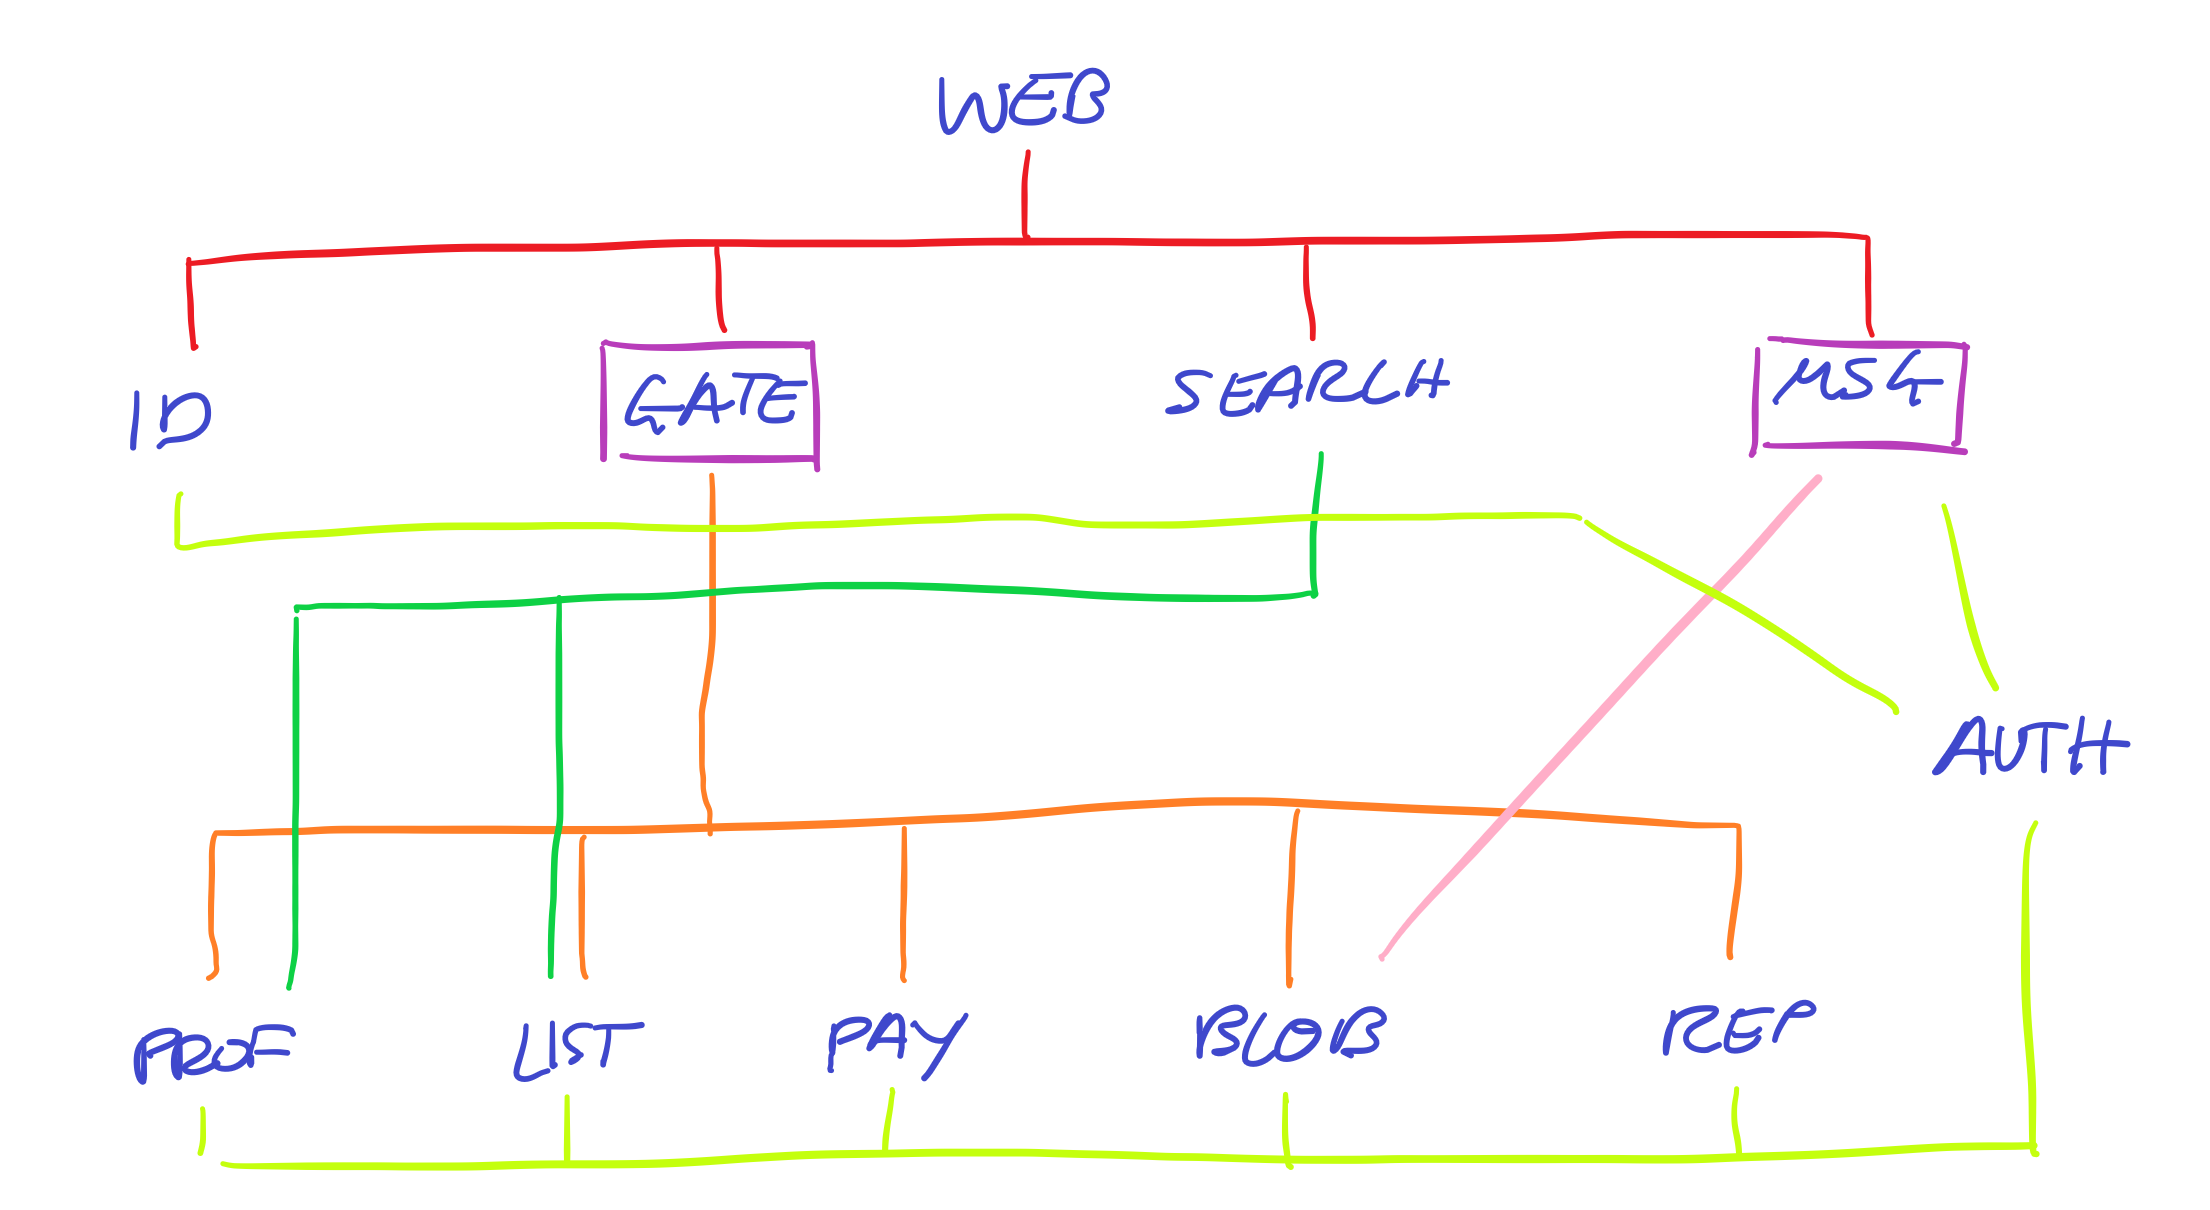 WEB
ID GATE SEARCH MSG
AUTH
PROF LIST PAY BLOB REP